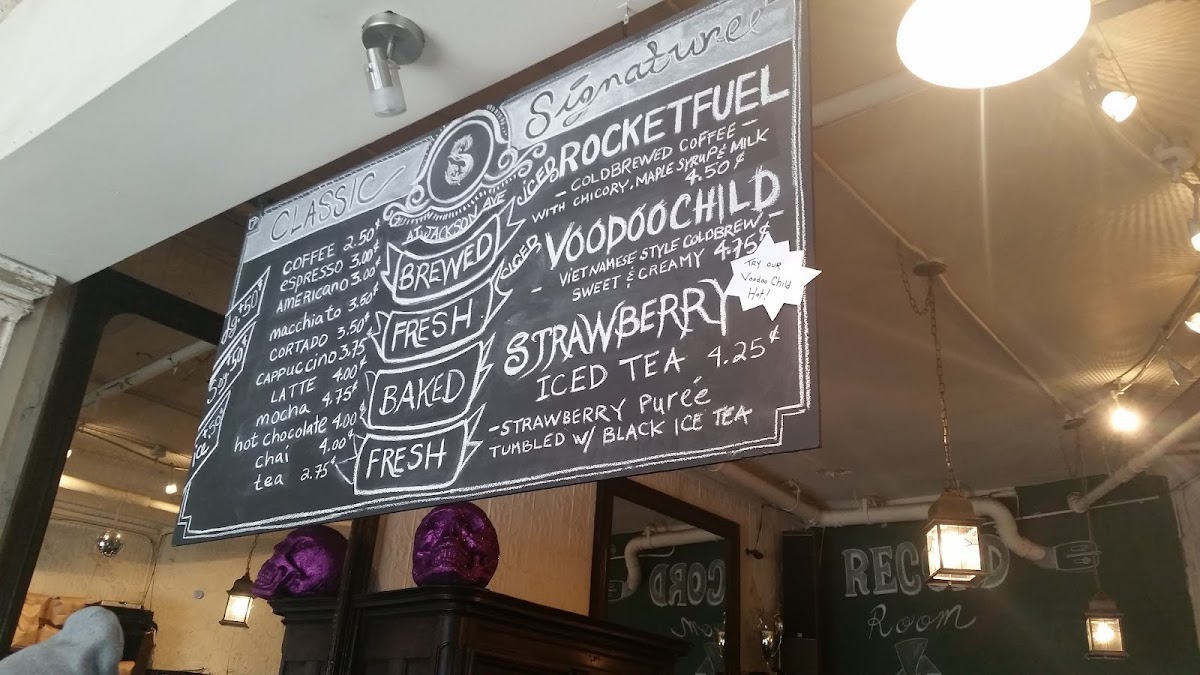 CLASSIC
COFFEE 2.50¢
eSPRESSO 3.00¢
AMERICANO 3.00¢
macchiato 3.50¢
CORTADO 3.50¢
CAPPUCCINO 3.75
LATTE 4.00¢
mocha 4.75¢
hot chocolate 4.00¢
chai 4.00¢
tea 2.75¢
lg +50¢
Soy +50¢
+.50¢
S
AT JACKSON AVE
BREWED
FRESH
BAKED
FRESH
Signature
ICED ROCKETFUEL
- COLDBREWED COFFEE -
WITH CHICORY, MAPLE SYRUP & MILK
4.50¢
ICED VOODOOCHILD
- VIETNAMESE STYLE COLDBREW -
SWEET & CREAMY 4.75¢
TRY OUR
Voodoo Child
Hot!
STRAWBERRY
ICED TEA 4.25¢
-STRAWBERRY PURÉE
TUMBLED W/ BLACK ICE TEA
RECORD
Room
CORD